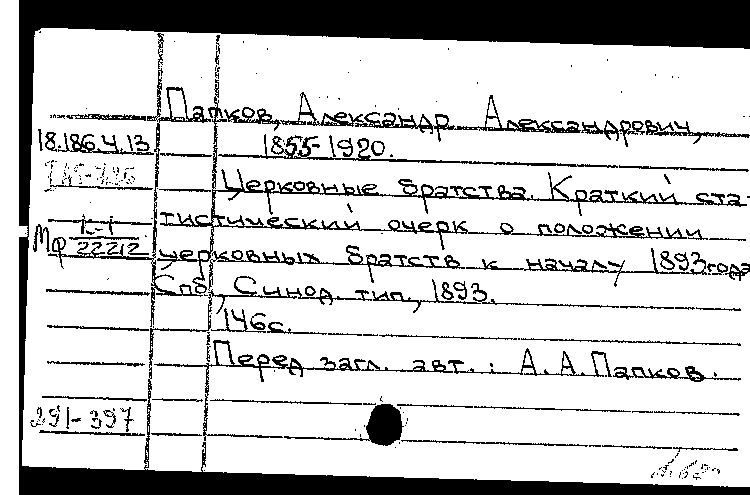 Папков, Александр Александрович,
18.186.4.13
1855-1920.
Церковные братства. Краткий ста-
тистический очерк о положении
Мф К-1 22212
церковных братств к началу 1893 года
Спб., Синод. тип., 1893.
146с.
Перед загл. авт.: А.А.Папков.
291-397